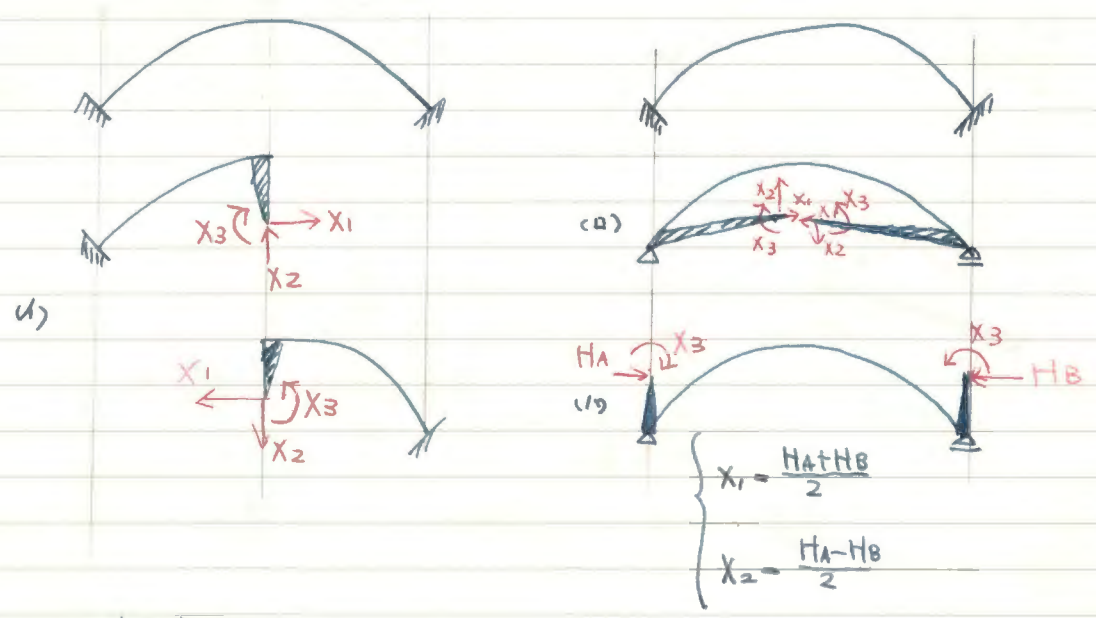 X3 X1
X2
(イ)
X1 X3
X2
(ロ)
X2 X1 X1 X3
X3 X2
HA X3 X3 HB
(ハ)
X1 = HA+HB / 2
X2 = HA-HB / 2